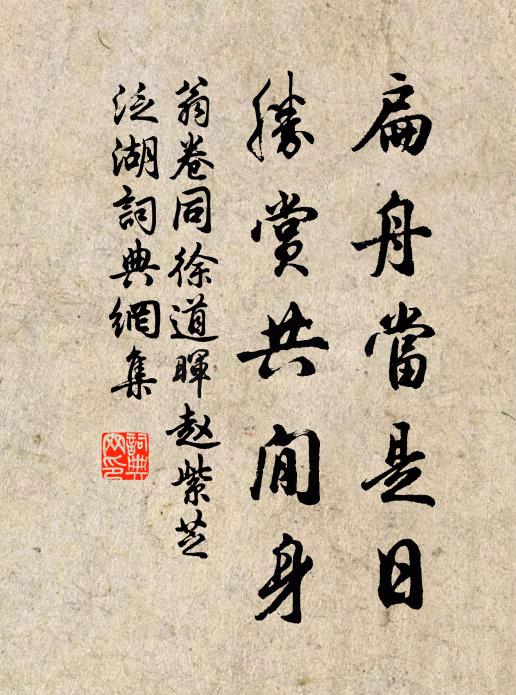 扁舟當是日
勝賞共閒身
翁卷同徐道暉趙紫芝
泛湖詞典網集
詞典网印